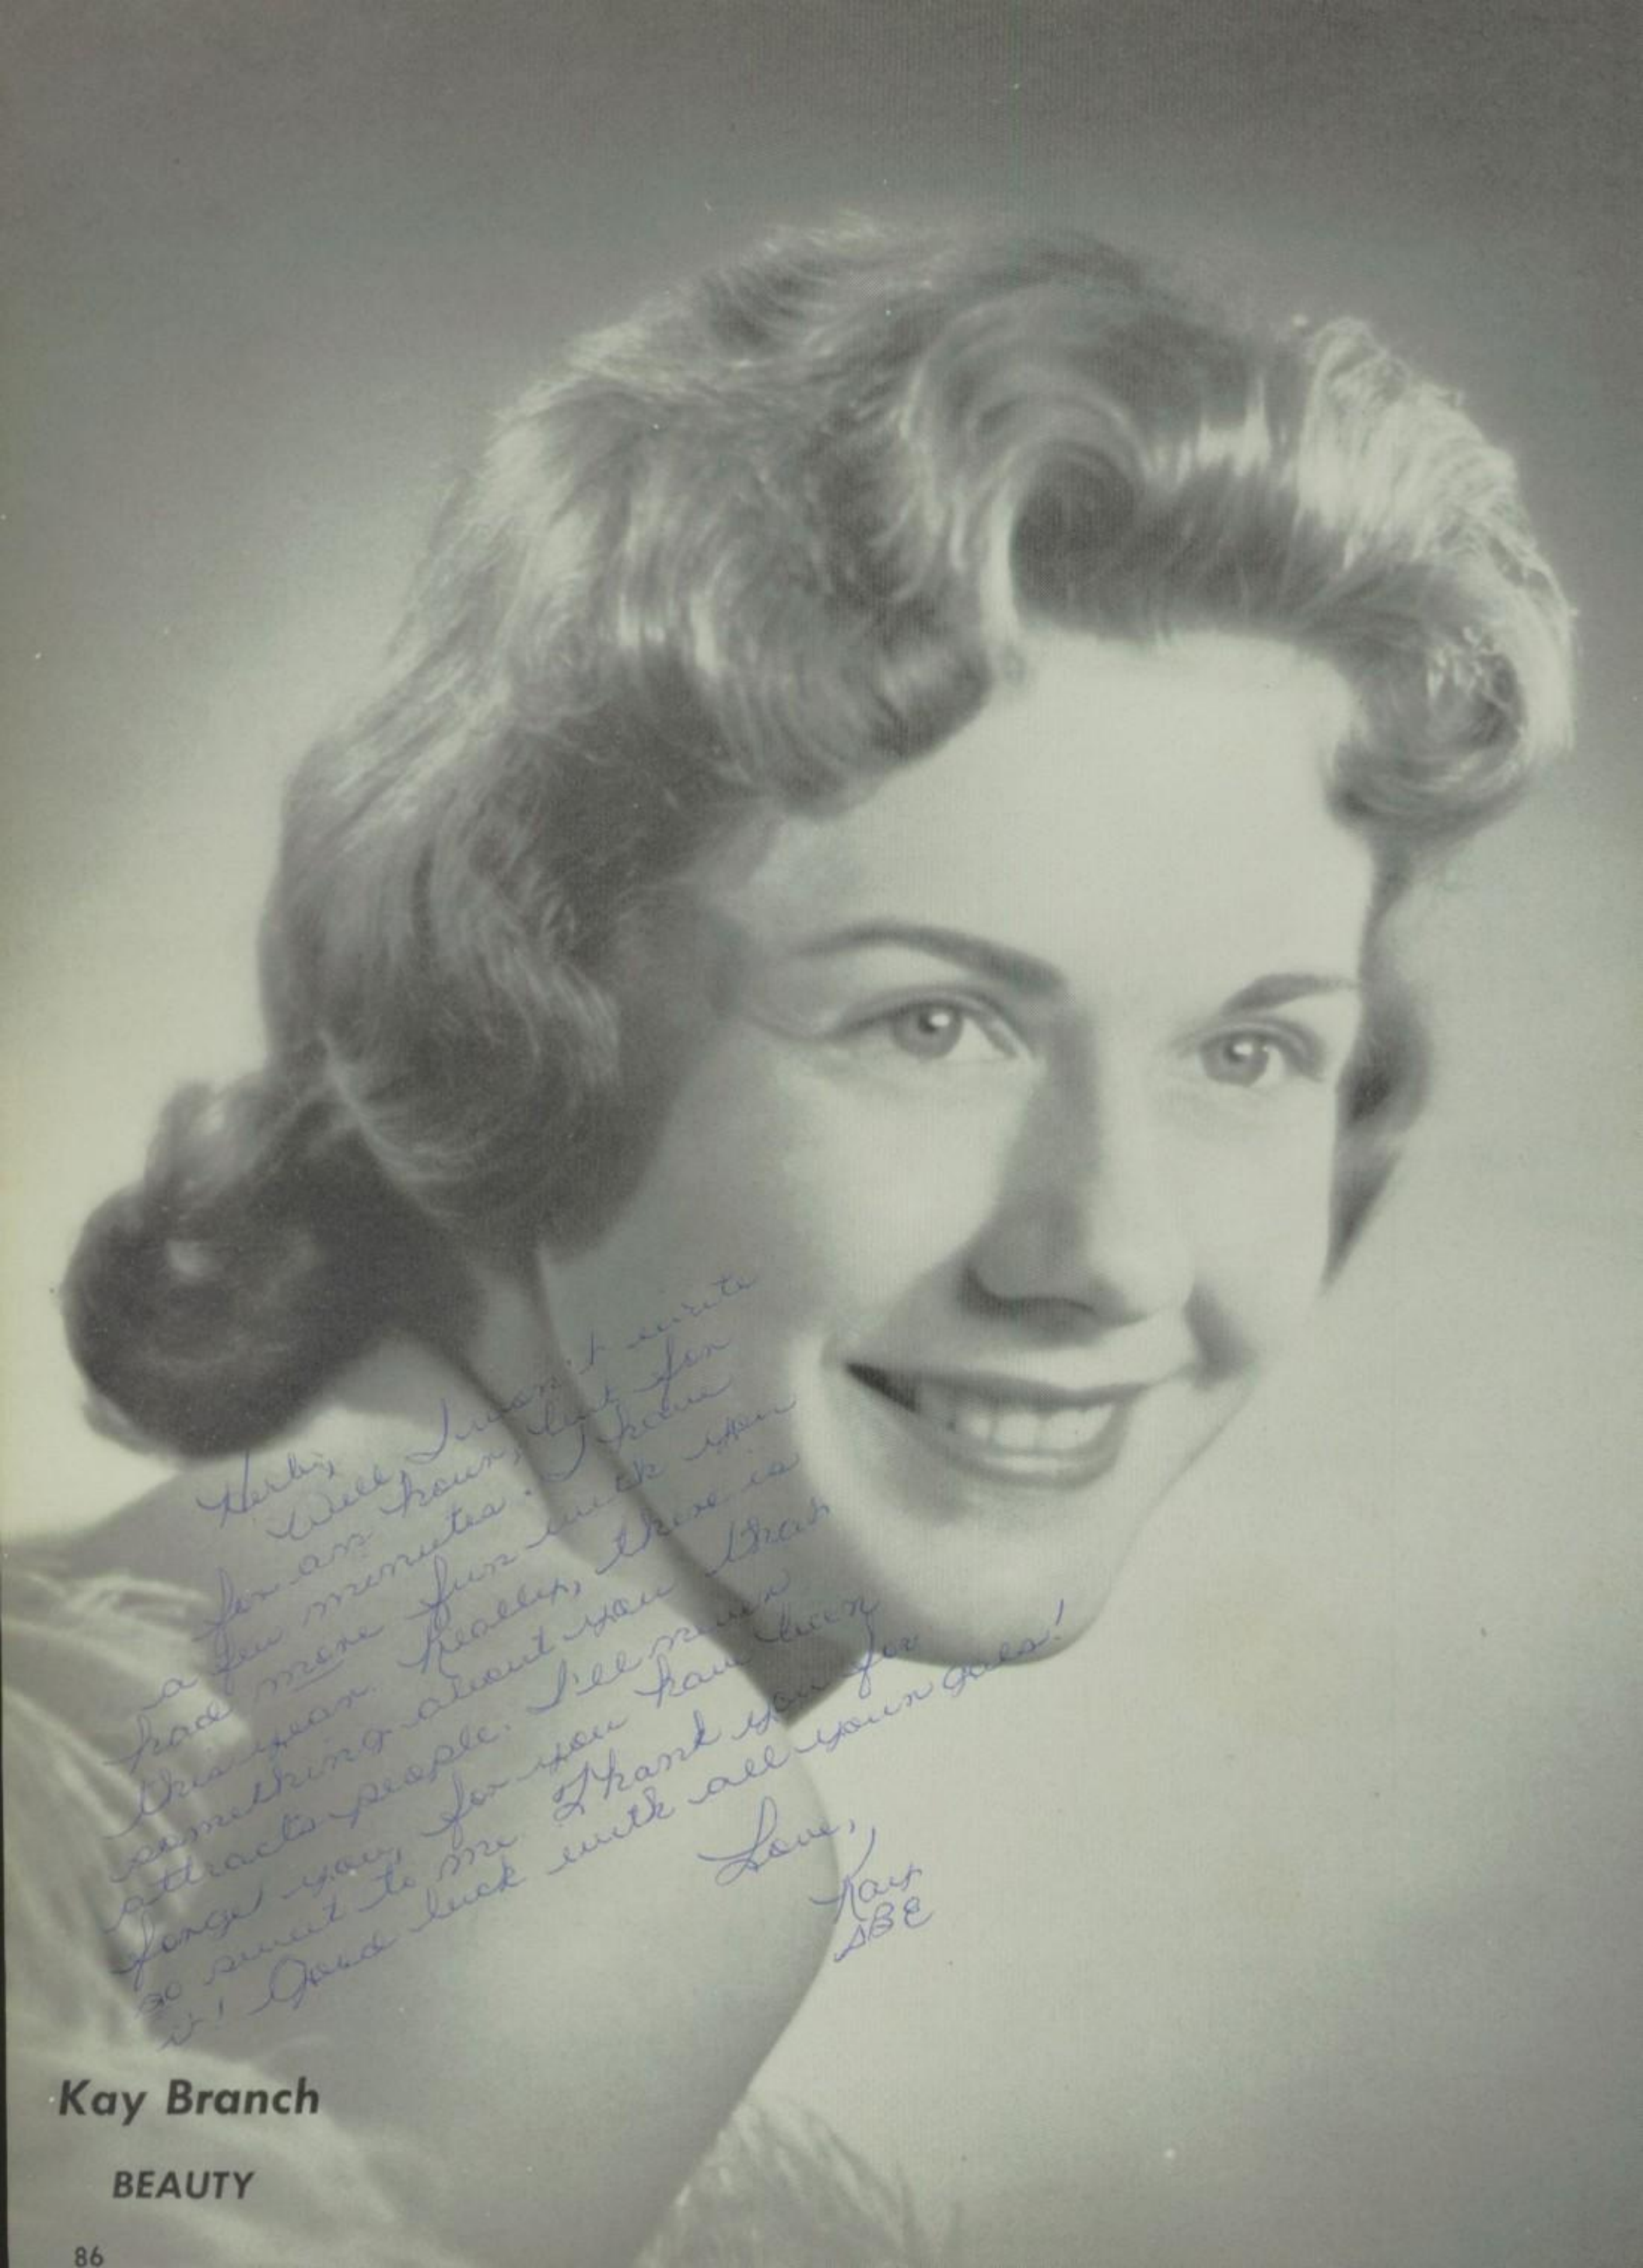 Herby,
Well, I won't write
for an hour, but for
a few minutes. I have
had more fun with you
this year. Really, there is
something about you that
attracts people. I'll never
forget you, for you have been
so sweet to me. Thank you for
it! Good luck with all your gals!
Love,
Kay
SBE
Kay Branch
BEAUTY
86